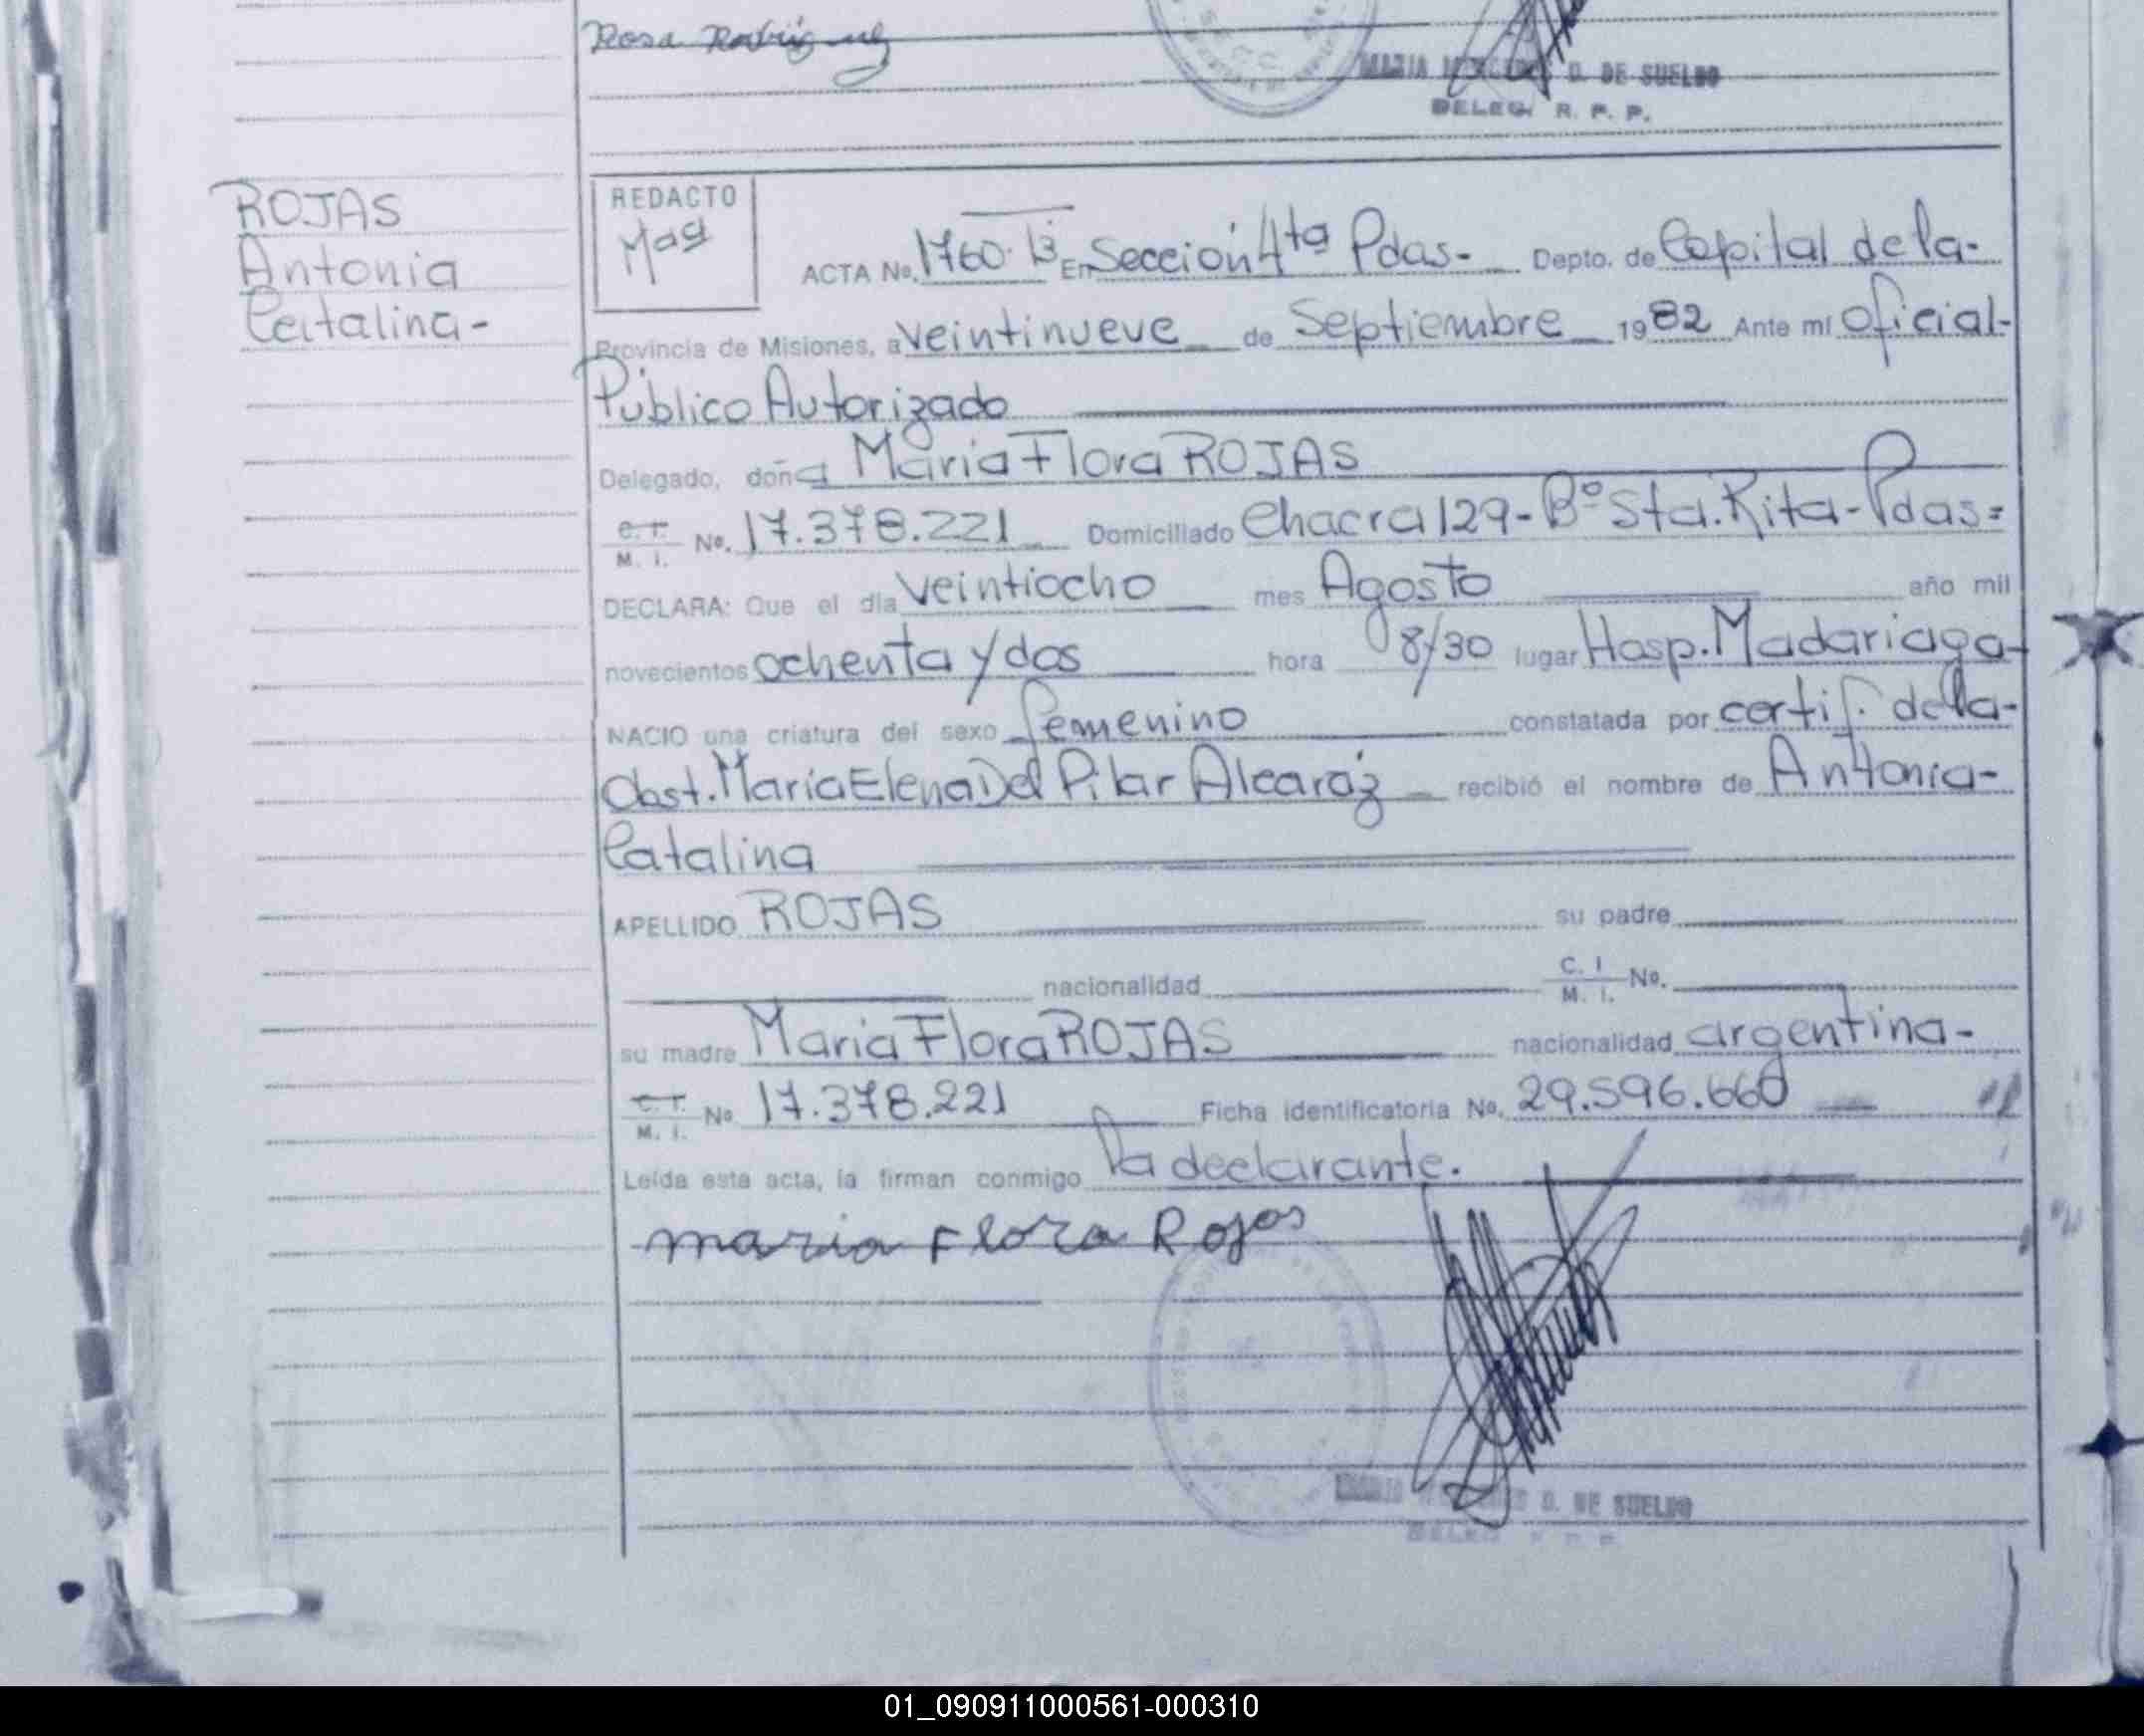 Rosa Rodriguez
MARIA D. DE SUELDO
DELEG. R. P. P.
ROJAS
Antonia
Catalina-
REDACTO
ACTA No. 1760. B En Sección 4ta Pdas- Depto. de Capital de la-
Provincia de Misiones, a veintinueve de Septiembre 1982 Ante mí Oficial-
Público Autorizado
Delegado, doña María Flora ROJAS
C.I. M. I. No. 17.378.221 Domiciliado Chacra 129-Bº Sta. Rita-Pdas=
DECLARA: Que el día veintiocho mes Agosto año mil
novecientos ochenta y dos hora 8/30 lugar Hosp. Madariaga-
NACIO una criatura del sexo femenino constatada por certif. de la-
Obst. María Elena Del Pilar Alcaráz recibió el nombre de Antonia-
Catalina
APELLIDO ROJAS su padre
nacionalidad C. I M. I. No.
su madre María Flora ROJAS nacionalidad argentina-
C.I. M. I. No 17.378.221 Ficha identificatoria No. 29.596.660
Leída esta acta, la firman conmigo la declarante.
maria Flora Rojas
D. DE SUELDO
01_090911000561-000310